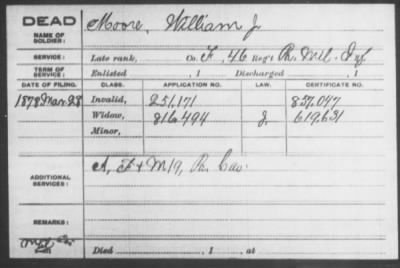 DEAD Moore, William J
NAME OF SOLDIER:
SERVICE: Late rank, Co. F, 46 Reg't Pa. Mil. Inf.
TERM OF SERVICE: Enlisted , 1 Discharged , 1
DATE OF FILING. CLASS. APPLICATION NO. LAW. CERTIFICATE NO.
1878 Mar. 28 Invalid, 251,171 857,047
Widow, 816,494 J. 619,631
Minor,
ADDITIONAL SERVICES: A, F & M 19, Pa. Cav.
REMARKS:
Died , 1 , at